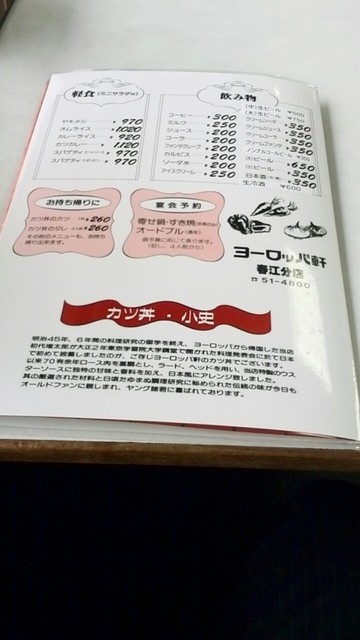 軽食(ミニサラダ付)
ヤキメシ 970
オムライス 1020
カレーライス 920
スパゲティ 970
スパゲティ 970
飲み物
コーヒー 300
ミルク 250
ジュース 200
コーラ 200
ファンタグレープ 200
カルピス 200
ソーダ水 200
アイスクリーム 250
(中)生ビール ¥500
(大)生ビール ¥750
クリームソーダ 350
クリームジュース 350
クリームコーラ 350
クリームファンタ 350
ノンアルコールビール ¥300
ビール 650
ビール 350
日本酒 350
生冷酒 ¥600
お持ち帰りに
カツ丼のカツ 1枚 ¥260
カツ丼のタレ ¥260
その他のメニューも、お持ち
帰り出来ます。
宴会予約
寄せ鍋・すき焼
オードブル
御予算に応じて承ります。
(但し、4人前から)
ヨーロッパ軒
春江分店
☎ 51-4800
カツ丼・小史
明治45年、6年間の料理研究の留学を終え、ヨーロッパから帰国した当店
初代増太郎が大正2年東京学習院大学講堂で開かれた料理発表会に於て日本
で初めて披露しましたのが、ご存じヨーロッパ軒のカツ丼でございます。
以来70有余年ロース肉を基調とし、ラード、ヘッドを用い、当店特製のウス
ターソースに独特の甘味と香料を加え、日本風にアレンジ致しました。
其の厳選された材料と日頃たゆまぬ調理研究に秘められた伝統の味が今日も
オールドファンに親しまれ、ヤング諸君に喜ばれております。